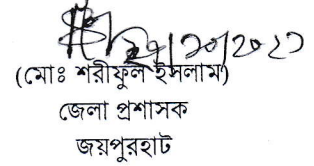 (মোঃ শরীফুল ইসলাম)
জেলা প্রশাসক
জয়পুরহাট